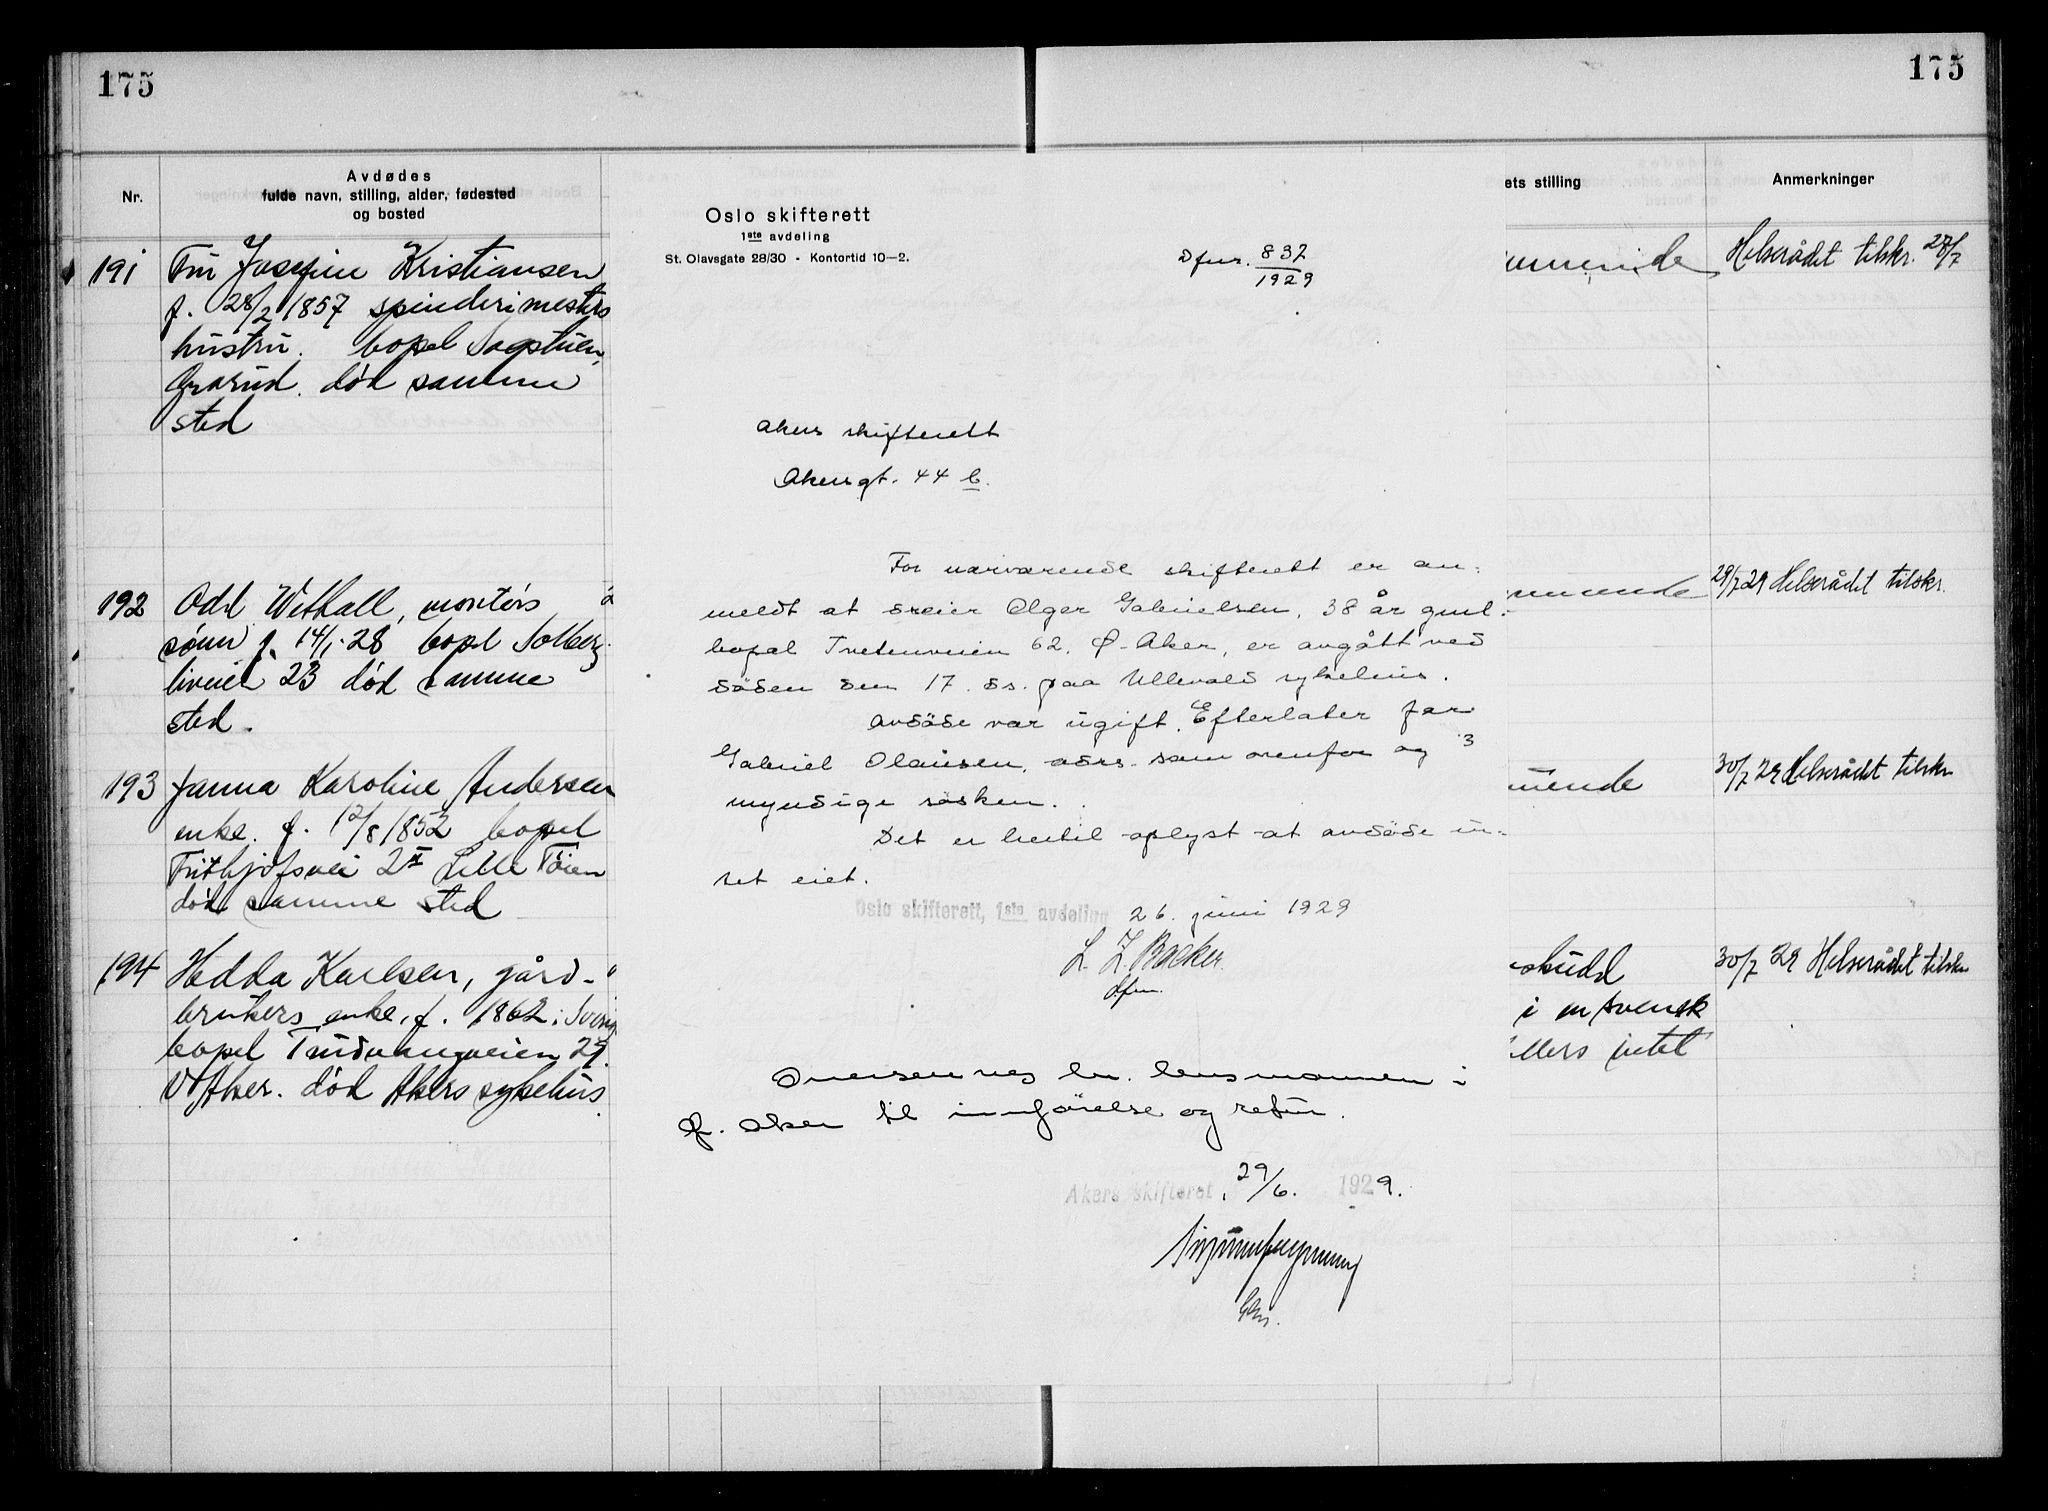 175
175
Nr.
Avdødes
fulde navn, stilling, alder, fødested
og bosted
191
Fru Josefine Kristiansen
f. 28/2 1857 spinderimesters
hustru. bopel Sagstuen,
Grorud. død samme
sted
192
Odd Wethall, montørs
sønn f. 14/1-28 bopel Solberg-
liveien 23 død samme
sted.
193
Janna Karoline Andersen
enke. f. 12/8 1852 bopel
Frithjofsvei 2 II Lille Tøien
død samme sted
194
Hedda Karlsen, gård-
brukers enke, f. 1862 i Sverige
bopel Trudvangveien 29.
V. Aker. død Akers sykehus.
Oslo skifterett
1ste avdeling
St. Olavsgate 28/30 - Kontortid 10-2.
Dfnr. 832
1929
Akers skifterett
Akersgt. 44 b.
For nærværende skifterett er an-
meldt at dreier Olger Gabrielsen, 38 år gml.
bopæl Tvetenveien 62. Ø. Aker, er avgått ved
døden den 17. ds. paa Ullevåld sykehus.
Avdøde var ugift. Efterlater far
Gabriel Olausen, adrs. som ovenfor og 3
myndige søsken.
Det er hertil oplyst at avdøde in-
tet eiet.
Oslo skifterett, 1ste avdeling 26. juni 1929
L. Z. Backer.
dfm.
Oversendes hr. lensmannen i
Ø. Aker til innførelse og retur.
Akers skifteret, 29/6. 1929.
ets stilling
Anmerkninger
Helserådet tilskr. 28/7
29/7 29 Helserådet tilskr.
30/7 29 Helserådet tilskr
skudd
i en svensk
ellers intet
30/7 29 Helserådet tilskr